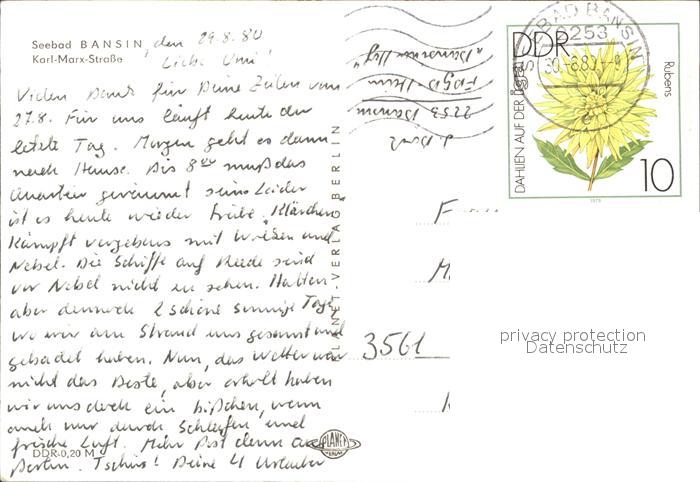 Seebad BANSIN, den 29.8.80
Karl-Marx-Straße
Liebe Omi!
Vielen Dank für Deine Zeilen vom
27.8. Für uns läuft heute der
letzte Tag. Morgen geht es dann
nach Hause. Bis 8 muß das
Quartier geräumt sein. Leider
ist es heute wieder trübe. Klärchen
kämpft vergebens mit Wolken und
Nebel. Die Schiffe auf Reede sind
vor Nebel nicht zu sehen. Hatten
aber dennoch 2 schöne sonnige Tage
wo wir am Strand uns gesonnt und
gebadet haben. Nun, das Wetter war
nicht das Beste, aber erholt haben
wir uns doch ein bißchen, wenn
auch nur durch Schlafen und
frische Luft. Mehr Post dann aus
Berlin. Tschüs! Deine 4 Urlauber
DDR 0,20 M
PLANET-VERLAG BERLIN
PLANET
VERLAG
2253 Bansin
FDGB Heim
3561
SEEBAD BANSIN
2253
DDR
DAHLIEN AUF DER
Rubens
10
1979
privacy protection
Datenschutz